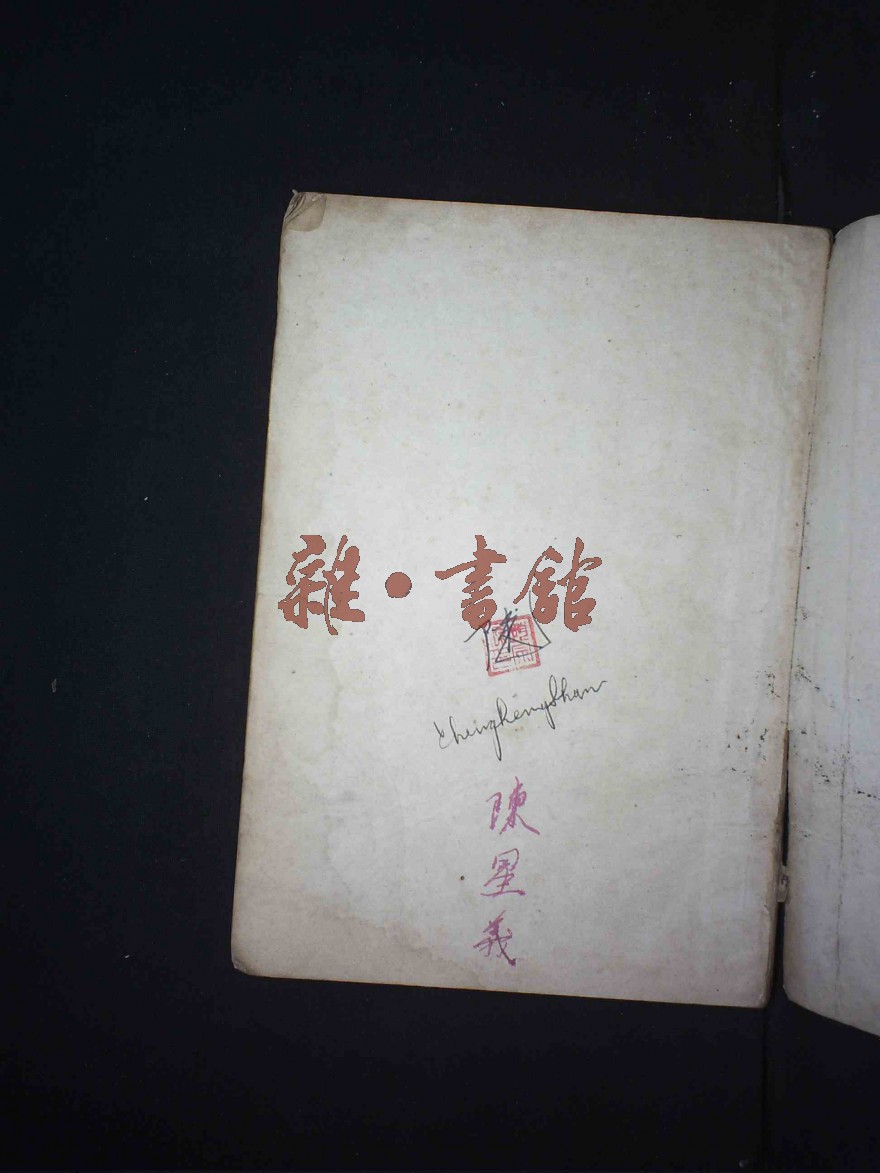 雜·書館
陳
Chenghengshan
陳
星
義